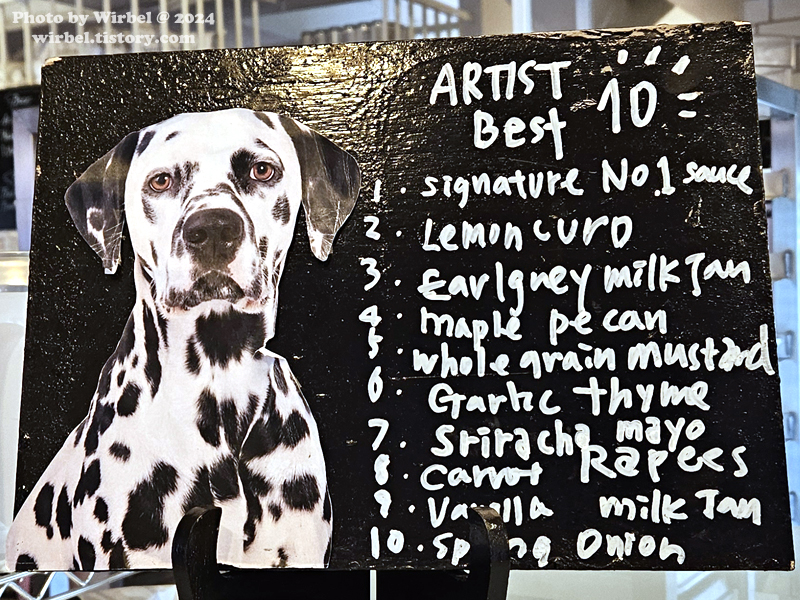 Photo by Wirbel @ 2024
wirbel.tistory.com
ARTIST
Best 10
1. signature No.1 sauce
2. Lemon curd
3. Earlgrey milk Jam
4. maple pecan
5. whole grain mustard
6. Garlic thyme
7. Sriracha mayo
8. Carrot Rapees
9. Vanilla milk Jam
10. Spring Onion